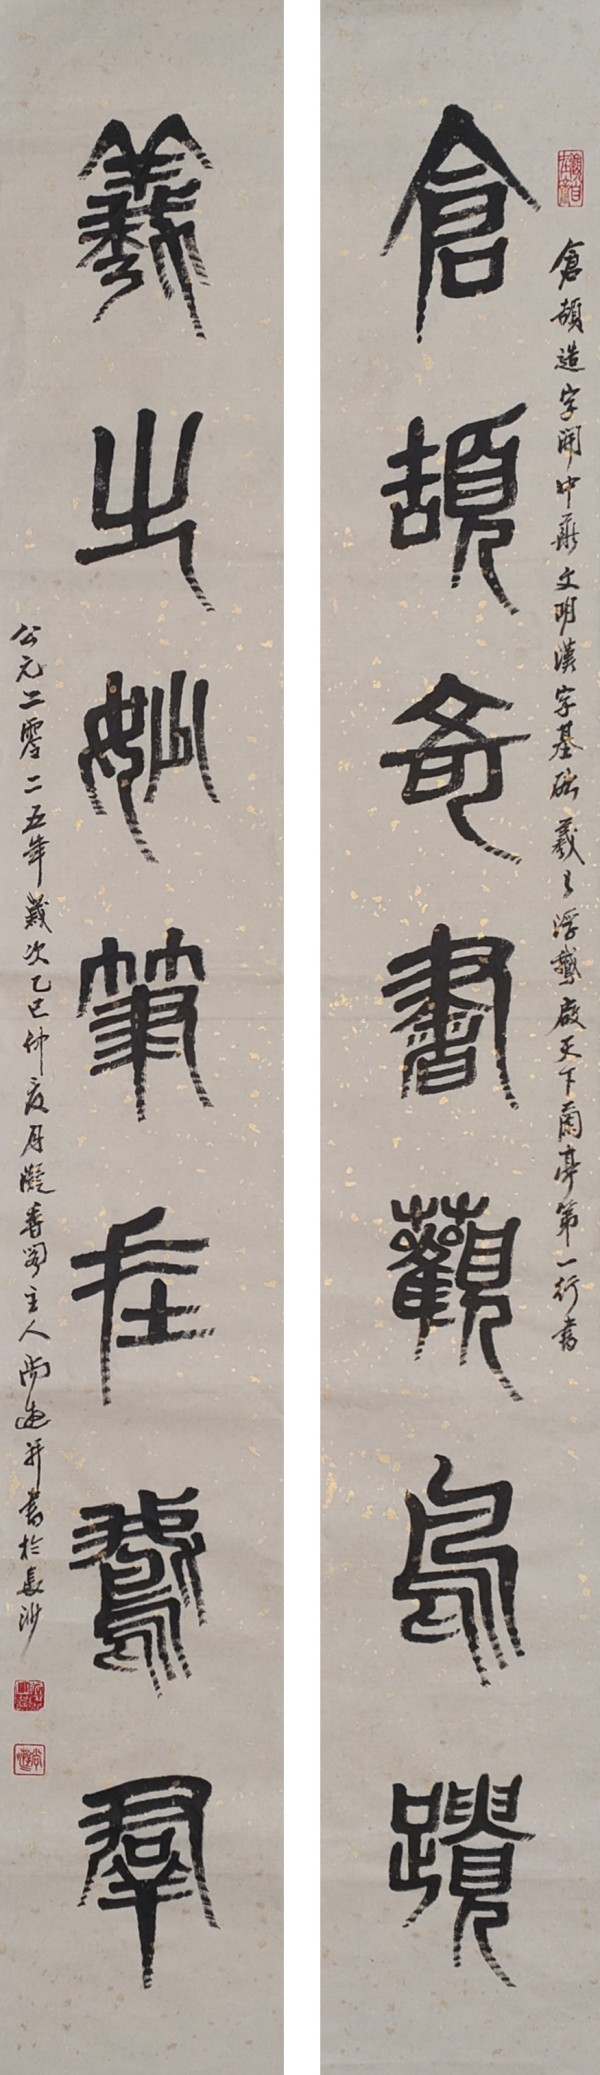 倉頡造字開中華文明漢字基础羲之浮鵝啟天下蘭亭第一行書
倉頡奇書觀鳥蹟
羲之妙筆在鵝群
公元二零二五年歲次乙巳仲夏月凝香閣主人尚并書於長沙